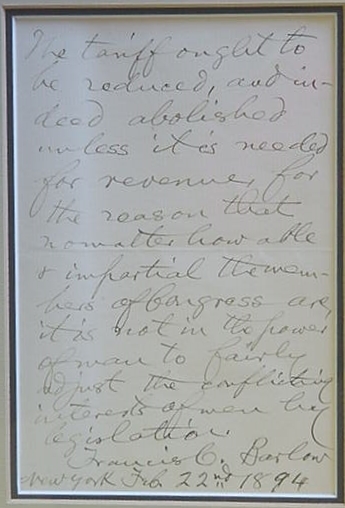 The tariff ought to
be reduced, and in-
deed abolished
unless it is needed
for revenue, for
the reason that
no matter how able
& impartial the mem-
bers of Congress are,
it is not in the power
of man to fairly
adjust the conflicting
interests of men by
legislation.
Francis C. Barlow
New York Feb. 22nd 1894